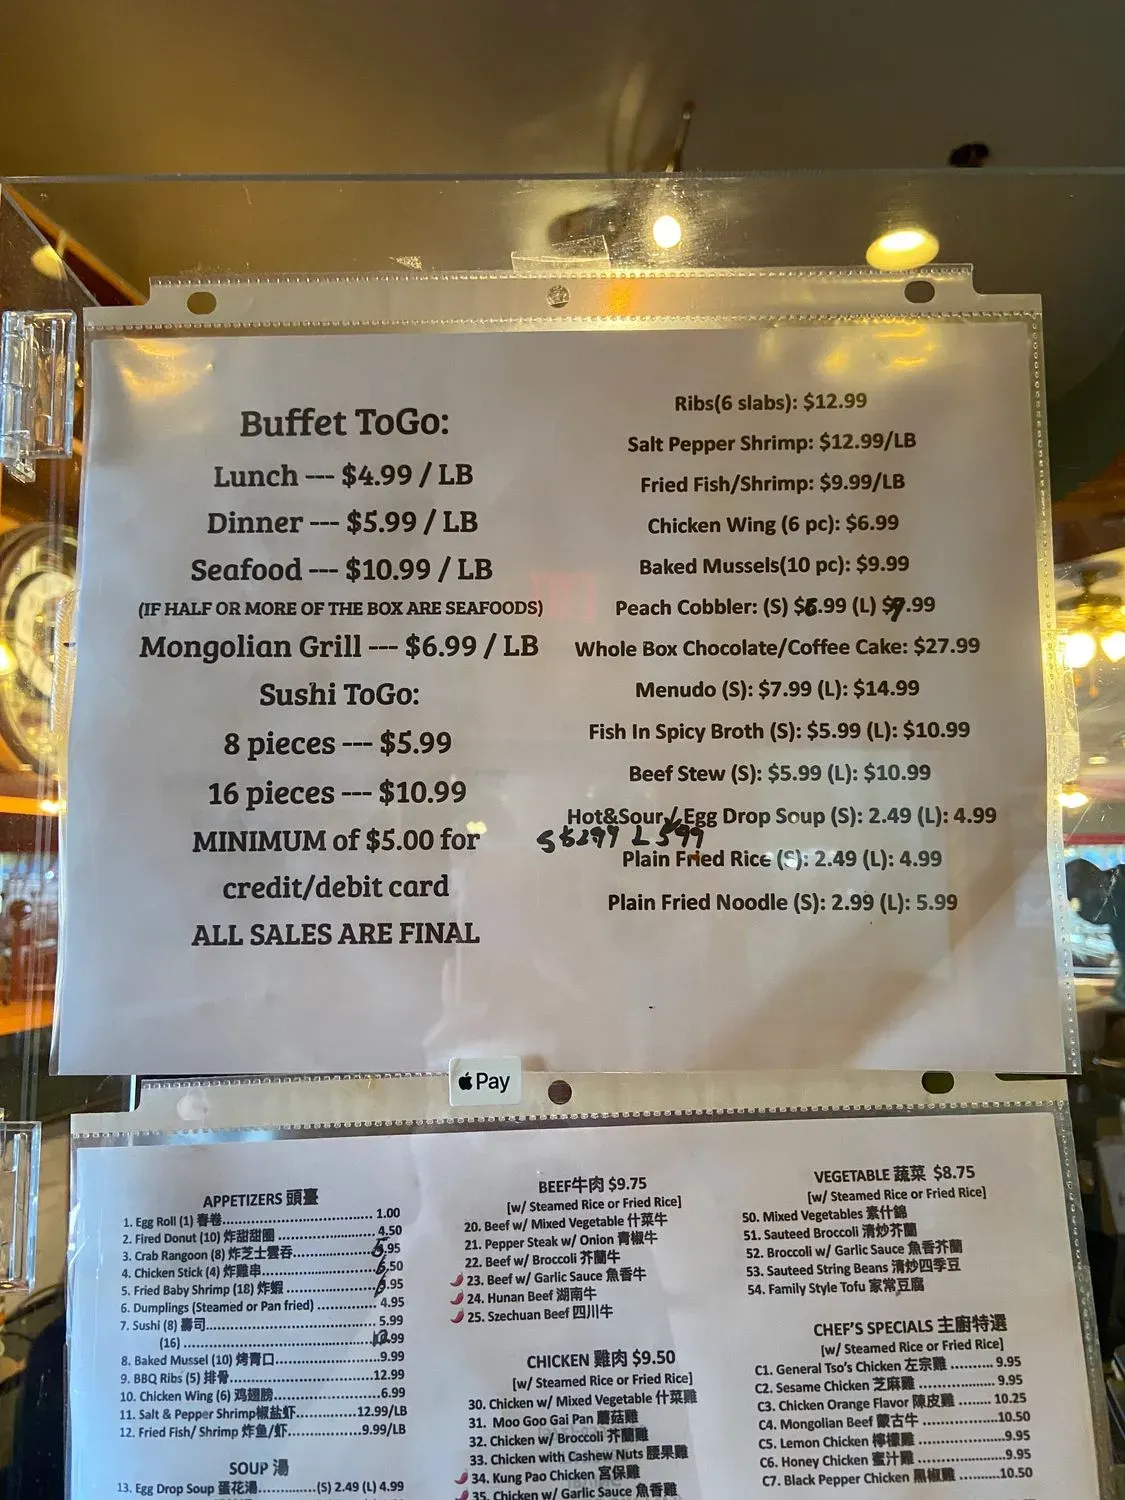 Buffet ToGo:
Lunch --- $4.99 / LB
Dinner --- $5.99 / LB
Seafood --- $10.99 / LB
(IF HALF OR MORE OF THE BOX ARE SEAFOODS)
Mongolian Grill --- $6.99 / LB
Sushi ToGo:
8 pieces --- $5.99
16 pieces --- $10.99
MINIMUM of $5.00 for
credit/debit card
ALL SALES ARE FINAL
Ribs(6 slabs): $12.99
Salt Pepper Shrimp: $12.99/LB
Fried Fish/Shrimp: $9.99/LB
Chicken Wing (6 pc): $6.99
Baked Mussels(10 pc): $9.99
Peach Cobbler: (S) $6.99 (L) $9.99
Whole Box Chocolate/Coffee Cake: $27.99
Menudo (S): $7.99 (L): $14.99
Fish In Spicy Broth (S): $5.99 (L): $10.99
Beef Stew (S): $5.99 (L): $10.99
Hot&Sour/Egg Drop Soup (S): 2.49 (L): 4.99
S $2.99 L 5.99
Plain Fried Rice (S): 2.49 (L): 4.99
Plain Fried Noodle (S): 2.99 (L): 5.99
Pay
APPETIZERS 頭臺
1. Egg Roll (1) 春卷 1.00
2. Fired Donut (10) 炸甜甜圈 4.50
3. Crab Rangoon (8) 炸芝士雲吞 .95
4. Chicken Stick (4) 炸雞串 .50
5. Fried Baby Shrimp (18) 炸蝦 .95
6. Dumplings (Steamed or Pan fried) 4.95
7. Sushi (8) 壽司 5.99
(16) .99
8. Baked Mussel (10) 烤青口 9.99
9. BBQ Ribs (5) 排骨 12.99
10. Chicken Wing (6) 鸡翅膀 6.99
11. Salt & Pepper Shrimp椒盐虾 12.99/LB
12. Fried Fish/ Shrimp 炸鱼/虾 9.99/LB
SOUP 湯
13. Egg Drop Soup 蛋花湯 (S) 2.49 (L) 4.99
BEEF牛肉 $9.75
[w/ Steamed Rice or Fried Rice]
20. Beef w/ Mixed Vegetable 什菜牛
21. Pepper Steak w/ Onion 青椒牛
22. Beef w/ Broccoli 芥蘭牛
23. Beef w/ Garlic Sauce 魚香牛
24. Hunan Beef 湖南牛
25. Szechuan Beef 四川牛
CHICKEN 雞肉 $9.50
[w/ Steamed Rice or Fried Rice]
30. Chicken w/ Mixed Vegetable 什菜雞
31. Moo Goo Gai Pan 蘑菇雞
32. Chicken w/ Broccoli 芥蘭雞
33. Chicken with Cashew Nuts 腰果雞
34. Kung Pao Chicken 宮保雞
35. Chicken w/ Garlic Sauce 魚香雞
VEGETABLE 蔬菜 $8.75
[w/ Steamed Rice or Fried Rice]
50. Mixed Vegetables 素什錦
51. Sauteed Broccoli 清炒芥蘭
52. Broccoli w/ Garlic Sauce 魚香芥蘭
53. Sauteed String Beans 清炒四季豆
54. Family Style Tofu 家常豆腐
CHEF'S SPECIALS 主廚特選
[w/ Steamed Rice or Fried Rice]
C1. General Tso's Chicken 左宗雞 9.95
C2. Sesame Chicken 芝麻雞 9.95
C3. Chicken Orange Flavor 陳皮雞 10.25
C4. Mongolian Beef 蒙古牛 10.50
C5. Lemon Chicken 檸檬雞 9.95
C6. Honey Chicken 蜜汁雞 9.95
C7. Black Pepper Chicken 黑椒雞 10.50